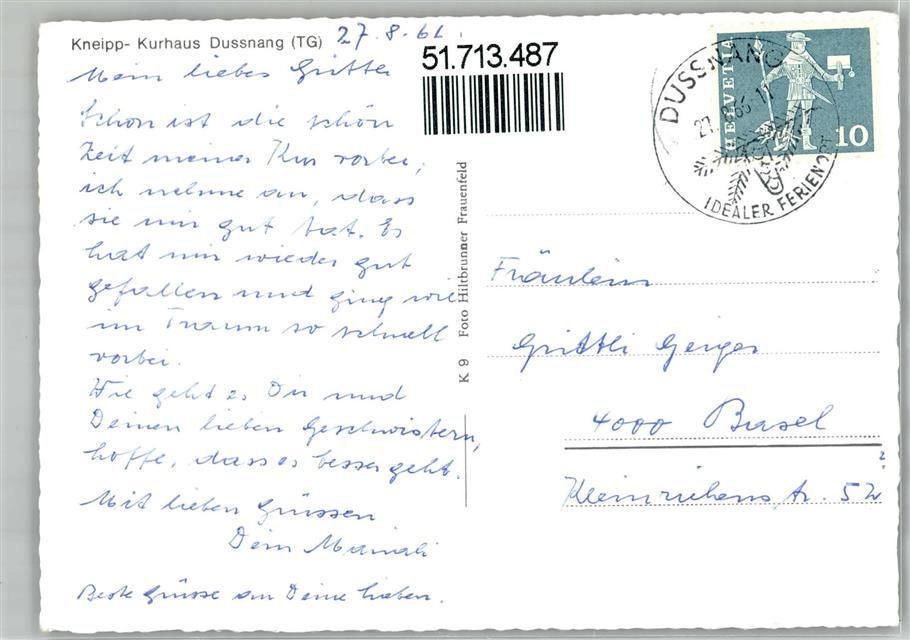 Kneipp- Kurhaus Dussnang (TG) 27.8.66
51.713.487
Mein liebes Gritte
Schon ist die schön
Zeit meiner Kur vorbei,
ich nehme an, dass
sie mir gut tat. Es
hat mir wieder gut
gefallen und ging wie
im Traum so schnell
vorbei.
Wie geht es Dir und
Deinen lieben Geschwistern,
hoffe, dass es besser geht.
Mit lieben Grüssen
Dein
Beste Grüsse an Deine Lieben.
K 9 Foto Hiltbrunner Frauenfeld
HELVETIA
10
DUSSNANG
IDEALER FERIENORT
Fräulein
Grittli Geiger
4000 Basel
Kleinriehenstr. 52
?